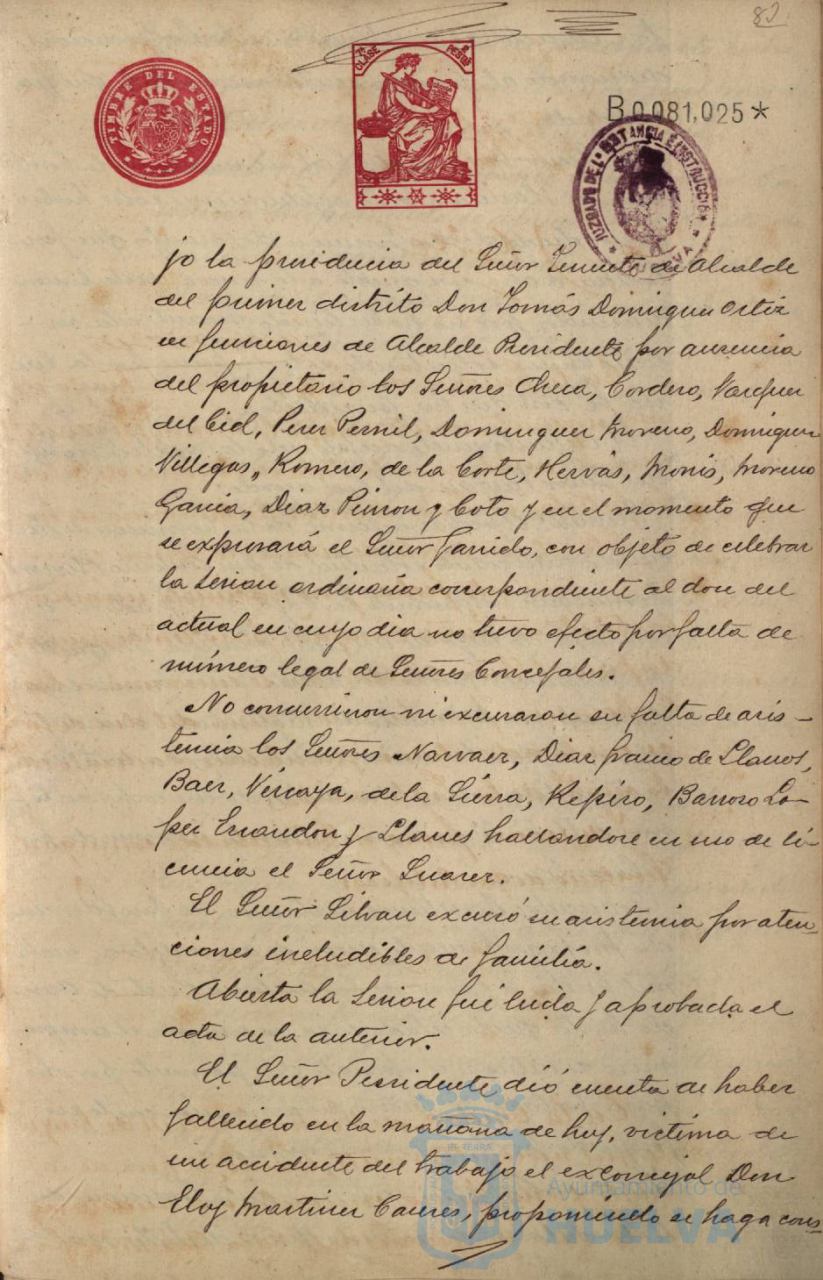 82.
TIMBRE DEL ESTADO
7ª CLASE
PESETAS
B0081,025*
JUZGADO DE 1ª INSTANCIA E INSTRUCCIÓN
HUELVA
jo la presidencia del Señor Teniente de Alcalde
del primer distrito Don Tomás Dominguez Ortiz
en funciones de Alcalde Presidente por ausencia
del propietario los Señores Checa, Cordero, Vazquez
del Cid, Perez Pernil, Dominguez Moreno, Dominguez
Villegas, Romero, de la Corte, Hervás, Monis, Moreno
Garcia, Diaz Pinzon y Coto y en el momento que
se expresará el Señor Garrido, con objeto de celebrar
la sesion ordinaria correspondiente al dos del
actual en cuyo dia no tuvo efecto por falta de
número legal de Señores Concejales.
No concurrieron ni excusaron su falta de asis-
tencia los Señores Narvaez, Diaz Franco de Llanos,
Baez, Vizcaya, de la Sierra, Repiso, Barroso Lo-
pez y Llanes hallandose en uso de li-
cencia el Señor Suarez.
El Señor Silvan excusó su asistencia por aten-
ciones ineludibles de familia.
Abierta la Sesion fué leida y aprobada el
acta de la anterior.
El Señor Presidente dió cuenta de haber
fallecido en la mañana de hoy, victima de
un accidente del trabajo el exconcejal Don
Eloy Martinez Caceres, proponiendo se haga cons-
Ayuntamiento de
HUELVA